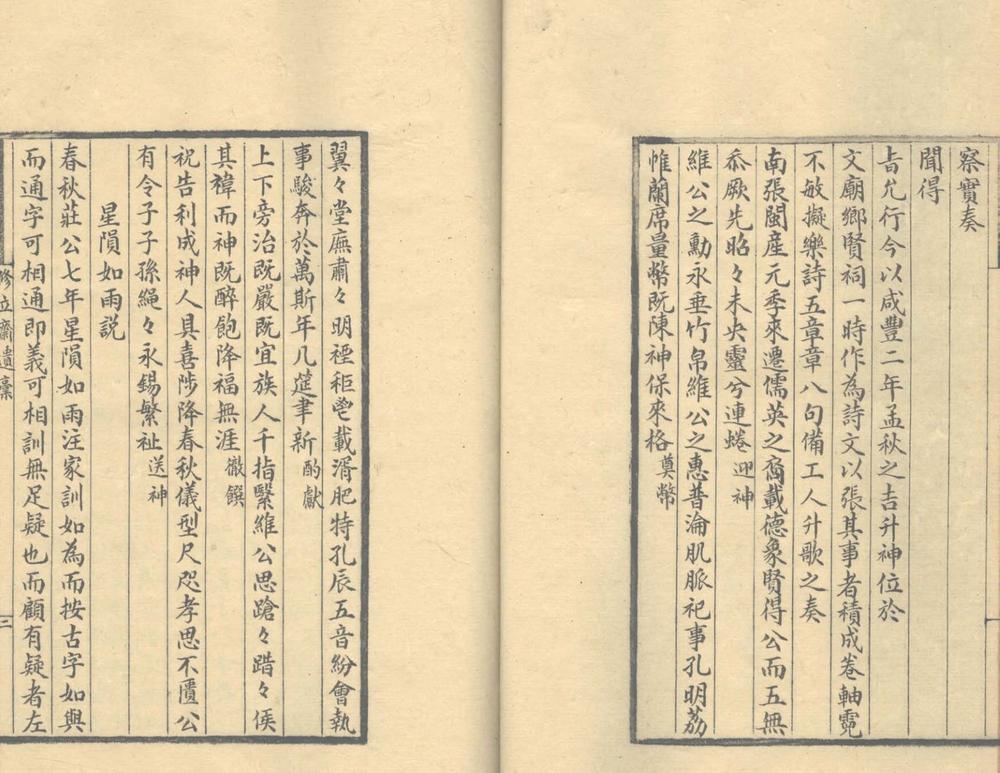 察實奏
聞得
旨允行今以咸豐二年孟秋之吉升神位於
文廟鄉賢祠一時作為詩文以張其事者積成卷軸霓
不敏擬樂詩五章章八句備工人升歌之奏
南張閩產元季來遷儒英之裔載德象賢得公而五無
忝厥先昭々未央靈兮連蜷迎神
維公之勳永垂竹帛維公之惠普淪肌脈祀事孔明荔
帷蘭席量幣既陳神保來格奠幣
翼々堂廡肅々明禋秬鬯載湑肥特孔辰五音紛會執
事駿奔於萬斯年几筵聿新酌獻
上下旁治既嚴既宜族人千指緊維公思蹌々踖々俟
其禕而神既醉飽降福無涯徹饌
祝告利成神人具喜陟降春秋儀型尺咫孝思不匱公
有令子子孫繩々永錫繁祉送神
星隕如雨説
春秋莊公七年星隕如雨注家訓如為而按古字如與
而通字可相通即義可相訓無足疑也而顧有疑者左
修立齋遺稾
三